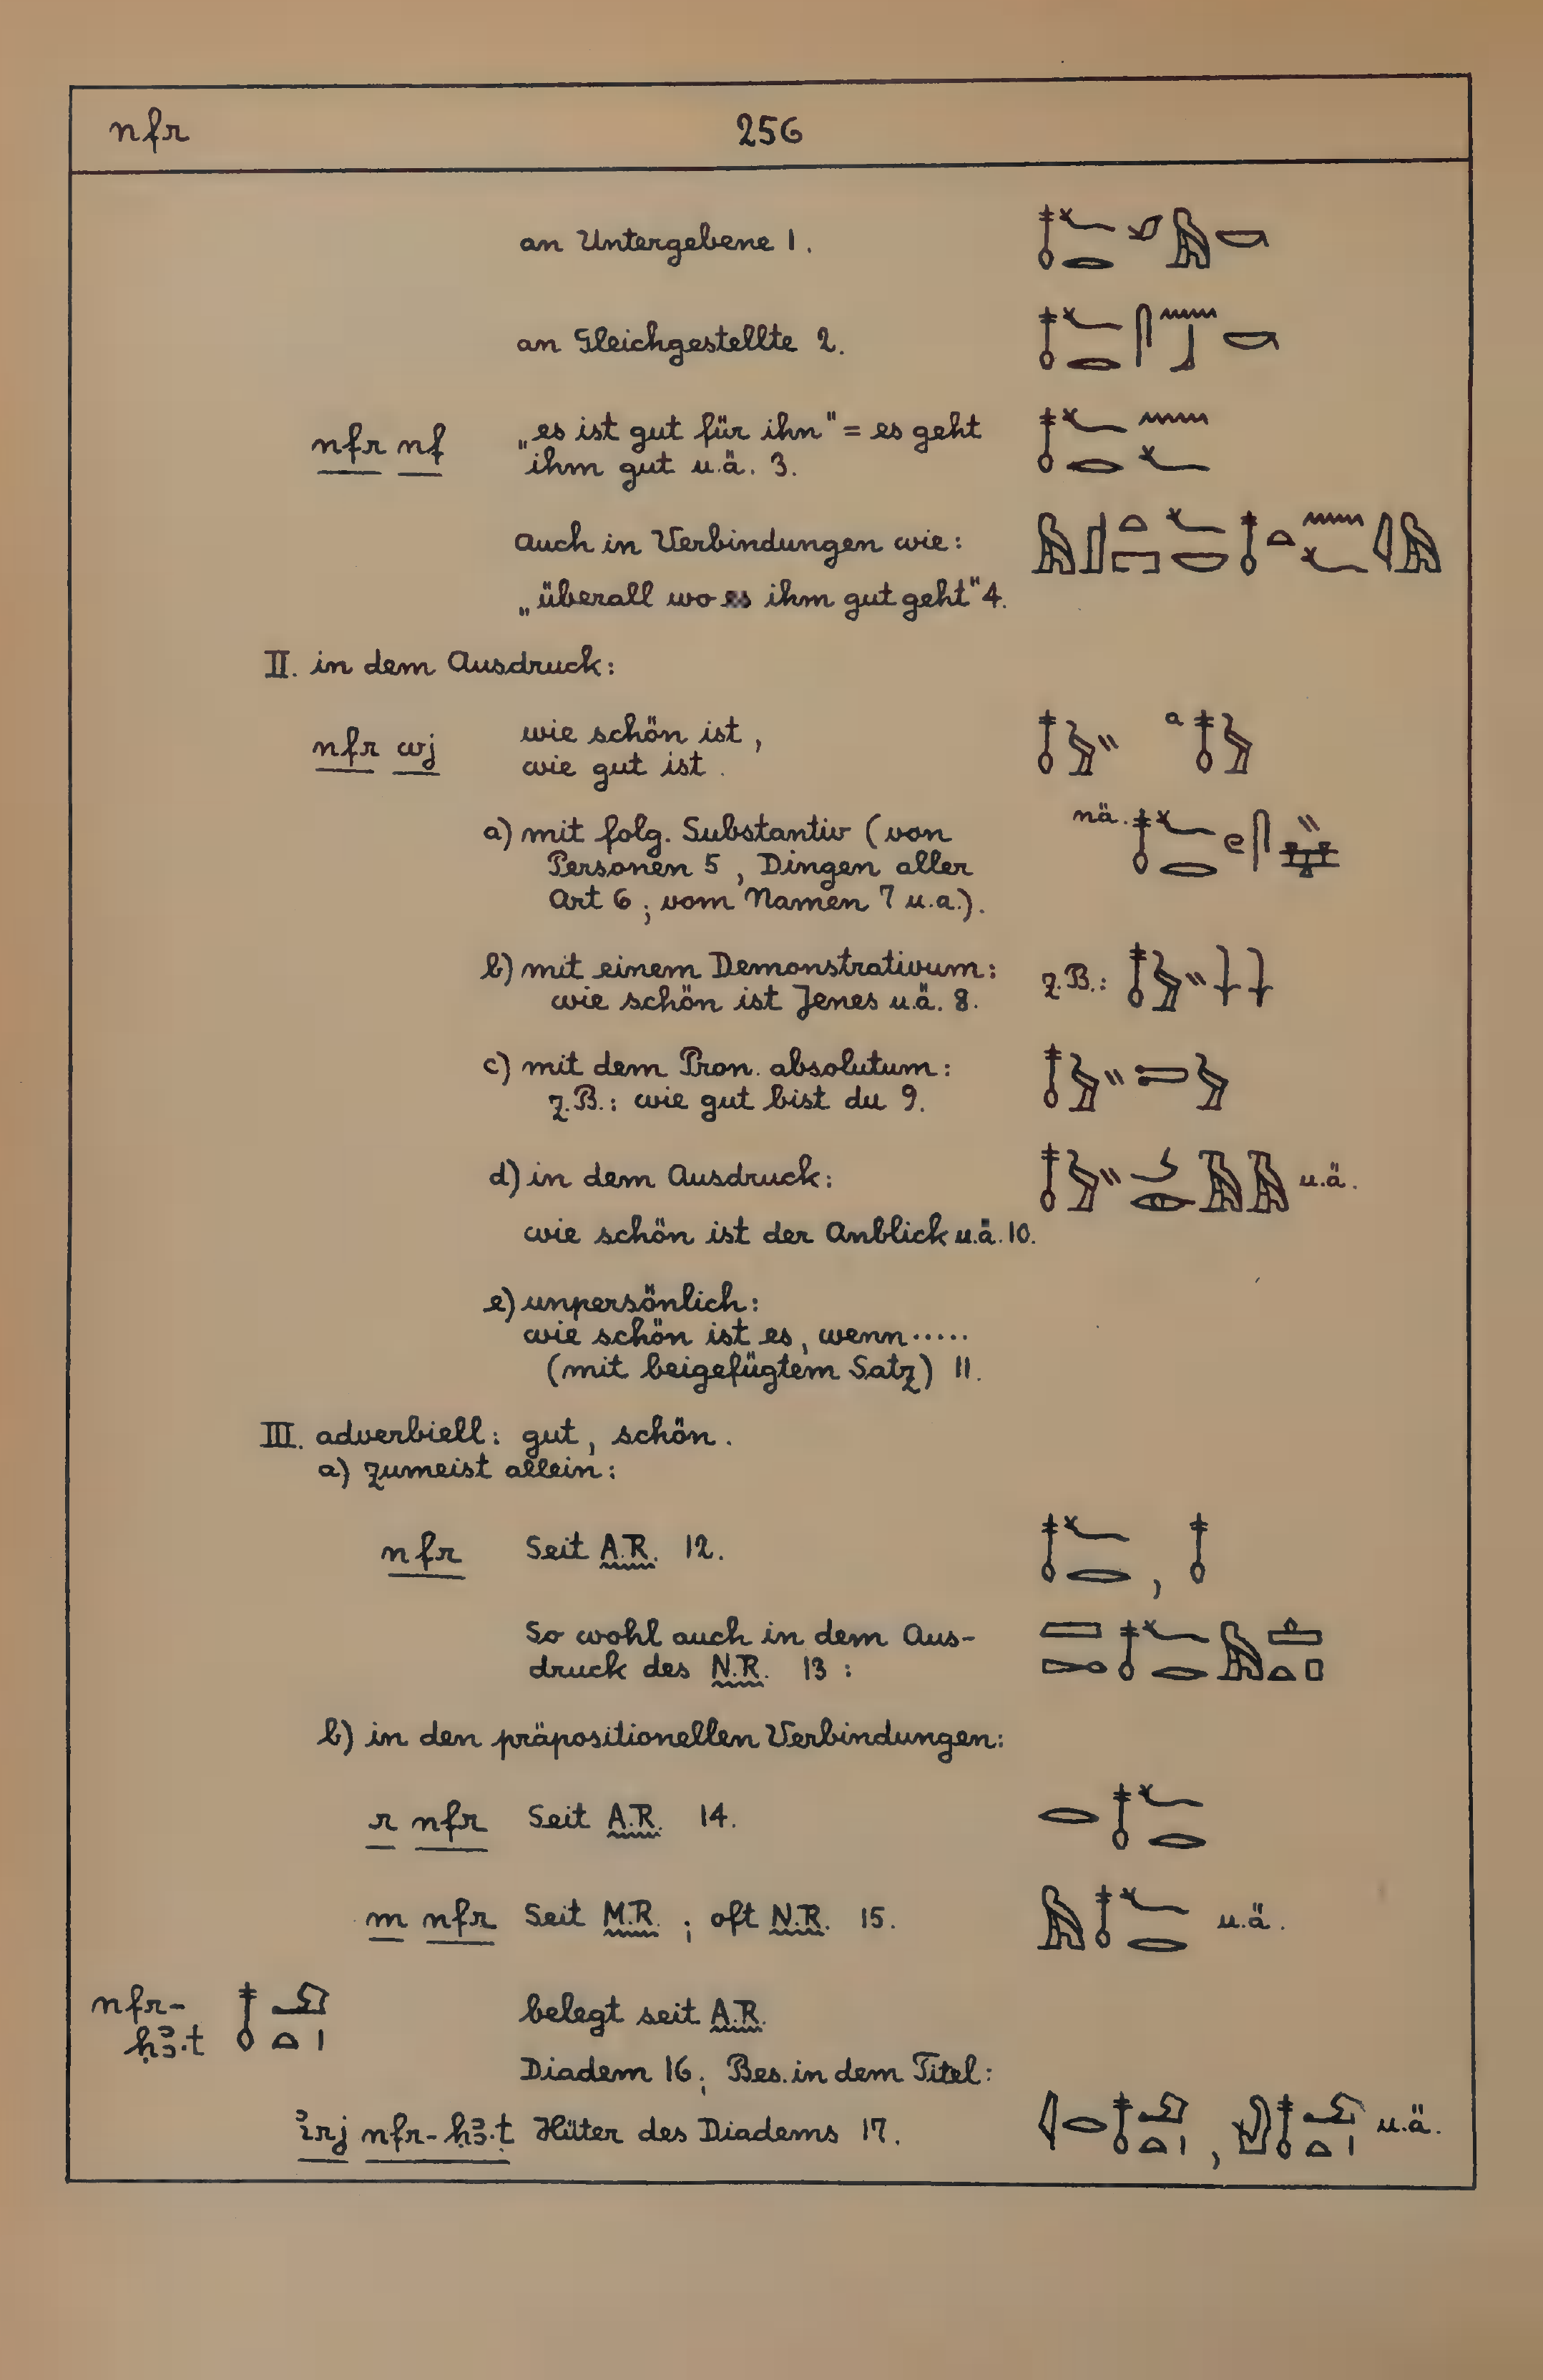 nfr 256
an Untergebene 1.
an Gleichgestellte 2.
nfr nf „es ist gut für ihn" = es geht
ihm gut u.ä. 3.
auch in Verbindungen wie:
„überall wo es ihm gut geht" 4.
II. in dem Ausdruck:
nfr wj wie schön ist,
wie gut ist. a
a) mit folg. Substantiv (von nä.
Personen 5, Dingen aller
Art 6; vom Namen 7 u.a.).
b) mit einem Demonstrativum: z.B.:
wie schön ist Jenes u.ä. 8.
c) mit dem Pron. absolutum:
z.B.: wie gut bist du 9.
d) in dem Ausdruck: u.ä.
wie schön ist der Anblick u.ä. 10.
e) unpersönlich:
wie schön ist es, wenn.....
(mit beigefügtem Satz) 11.
III. adverbiell: gut, schön.
a) zumeist allein:
nfr Seit A.R. 12. ,
So wohl auch in dem Aus-
druck des N.R. 13:
b) in den präpositionellen Verbindungen:
r nfr Seit A.R. 14.
m nfr Seit M.R.; oft N.R. 15. u.ä.
nfr- belegt seit A.R.
ḥꜣ.t
Diadem 16; Bes. in dem Titel:
ꞽrj nfr-ḥꜣ.t Hüter des Diadems 17. , u.ä.